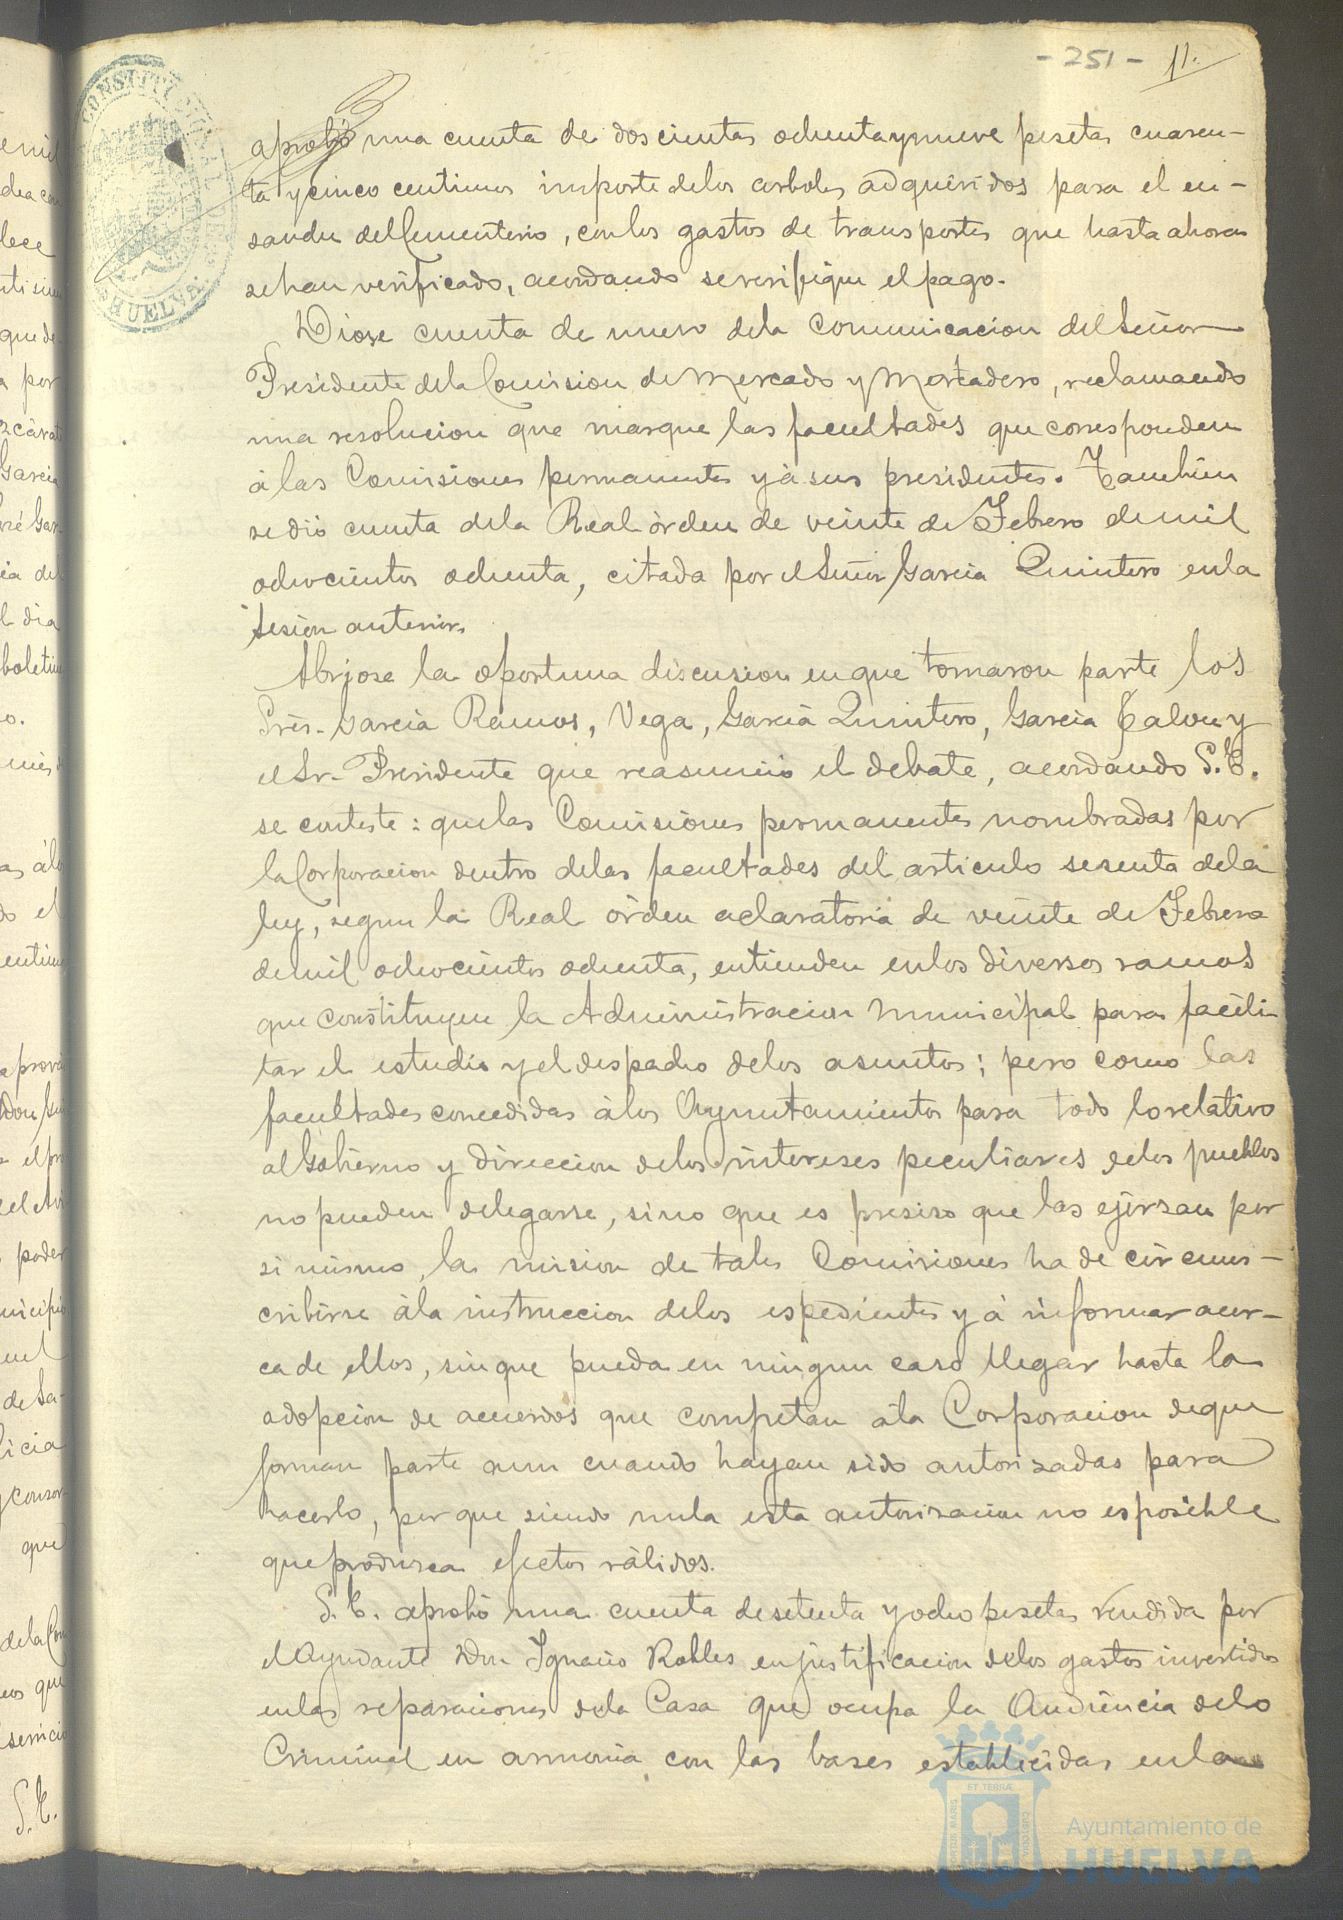 - 251 -
11.
aprobó una cuenta de doscientas ochenta y nueve pesetas cuaren-
ta y cinco centimos importe delos arboles adquiridos para el en-
sanche del Cementerio, con los gastos de transportes que hasta ahora
se han verificado, acordando se verifique el pago.
Diose cuenta de nuevo dela comunicacion del Señor
Presidente dela Comision de Mercado y Matadero, reclamando
una resolucion que marque las facultades que corresponden
á las Comisiones permanentes y á sus presidentes. Tambien
se dió cuenta dela Real órden de veinte de Febrero de mil
ochocientos ochenta, citada por el Señor Garcia Quintero en la
sesion anterior.
Abriose la oportuna discusion en que tomaron parte los
Sres. Garcia Ramos, Vega, Garcia Quintero, Garcia y
el Sr. Presidente que reasumió el debate, acordando S.E.
se conteste: que las Comisiones permanentes nombradas por
la Corporacion dentro delas facultades del articulo sesenta dela
ley, segun la Real órden aclaratoria de veinte de Febrero
de mil ochocientos ochenta, entienden en los diversos ramos
que constituyen la Administracion Municipal para facili-
tar el estudio y el despacho delos asuntos; pero como las
facultades concedidas á los Ayuntamientos para todo lo relativo
al Gobierno y direccion delos intereses peculiares delos pueblos
no pueden delegarse, sino que es presiso que las ejersan por
si mismo, la mision de tales Comisiones ha de circuns-
cribirse á la instruccion delos espedientes y á informar acer-
ca de ellos, sin que pueda en ningun caso llegar hasta la
adopcion de acuerdos que competan á la Corporacion de que
forman parte aun cuando hayan sido autorizadas para
hacerlo, por que siendo nula esta autorisacion no es posible
que produsca efectos válidos.
S. E. aprobó una cuenta de setenta y ocho pesetas rendida por
el Ayudante Don Ignacio Robles en justificacion delos gastos invertidos
en las reparaciones dela Casa que ocupa la Audiencia delo
Criminal en armonia con las bases establecidas en la
CONSTITUCIONAL
HUELVA
Ayuntamiento de
HUELVA